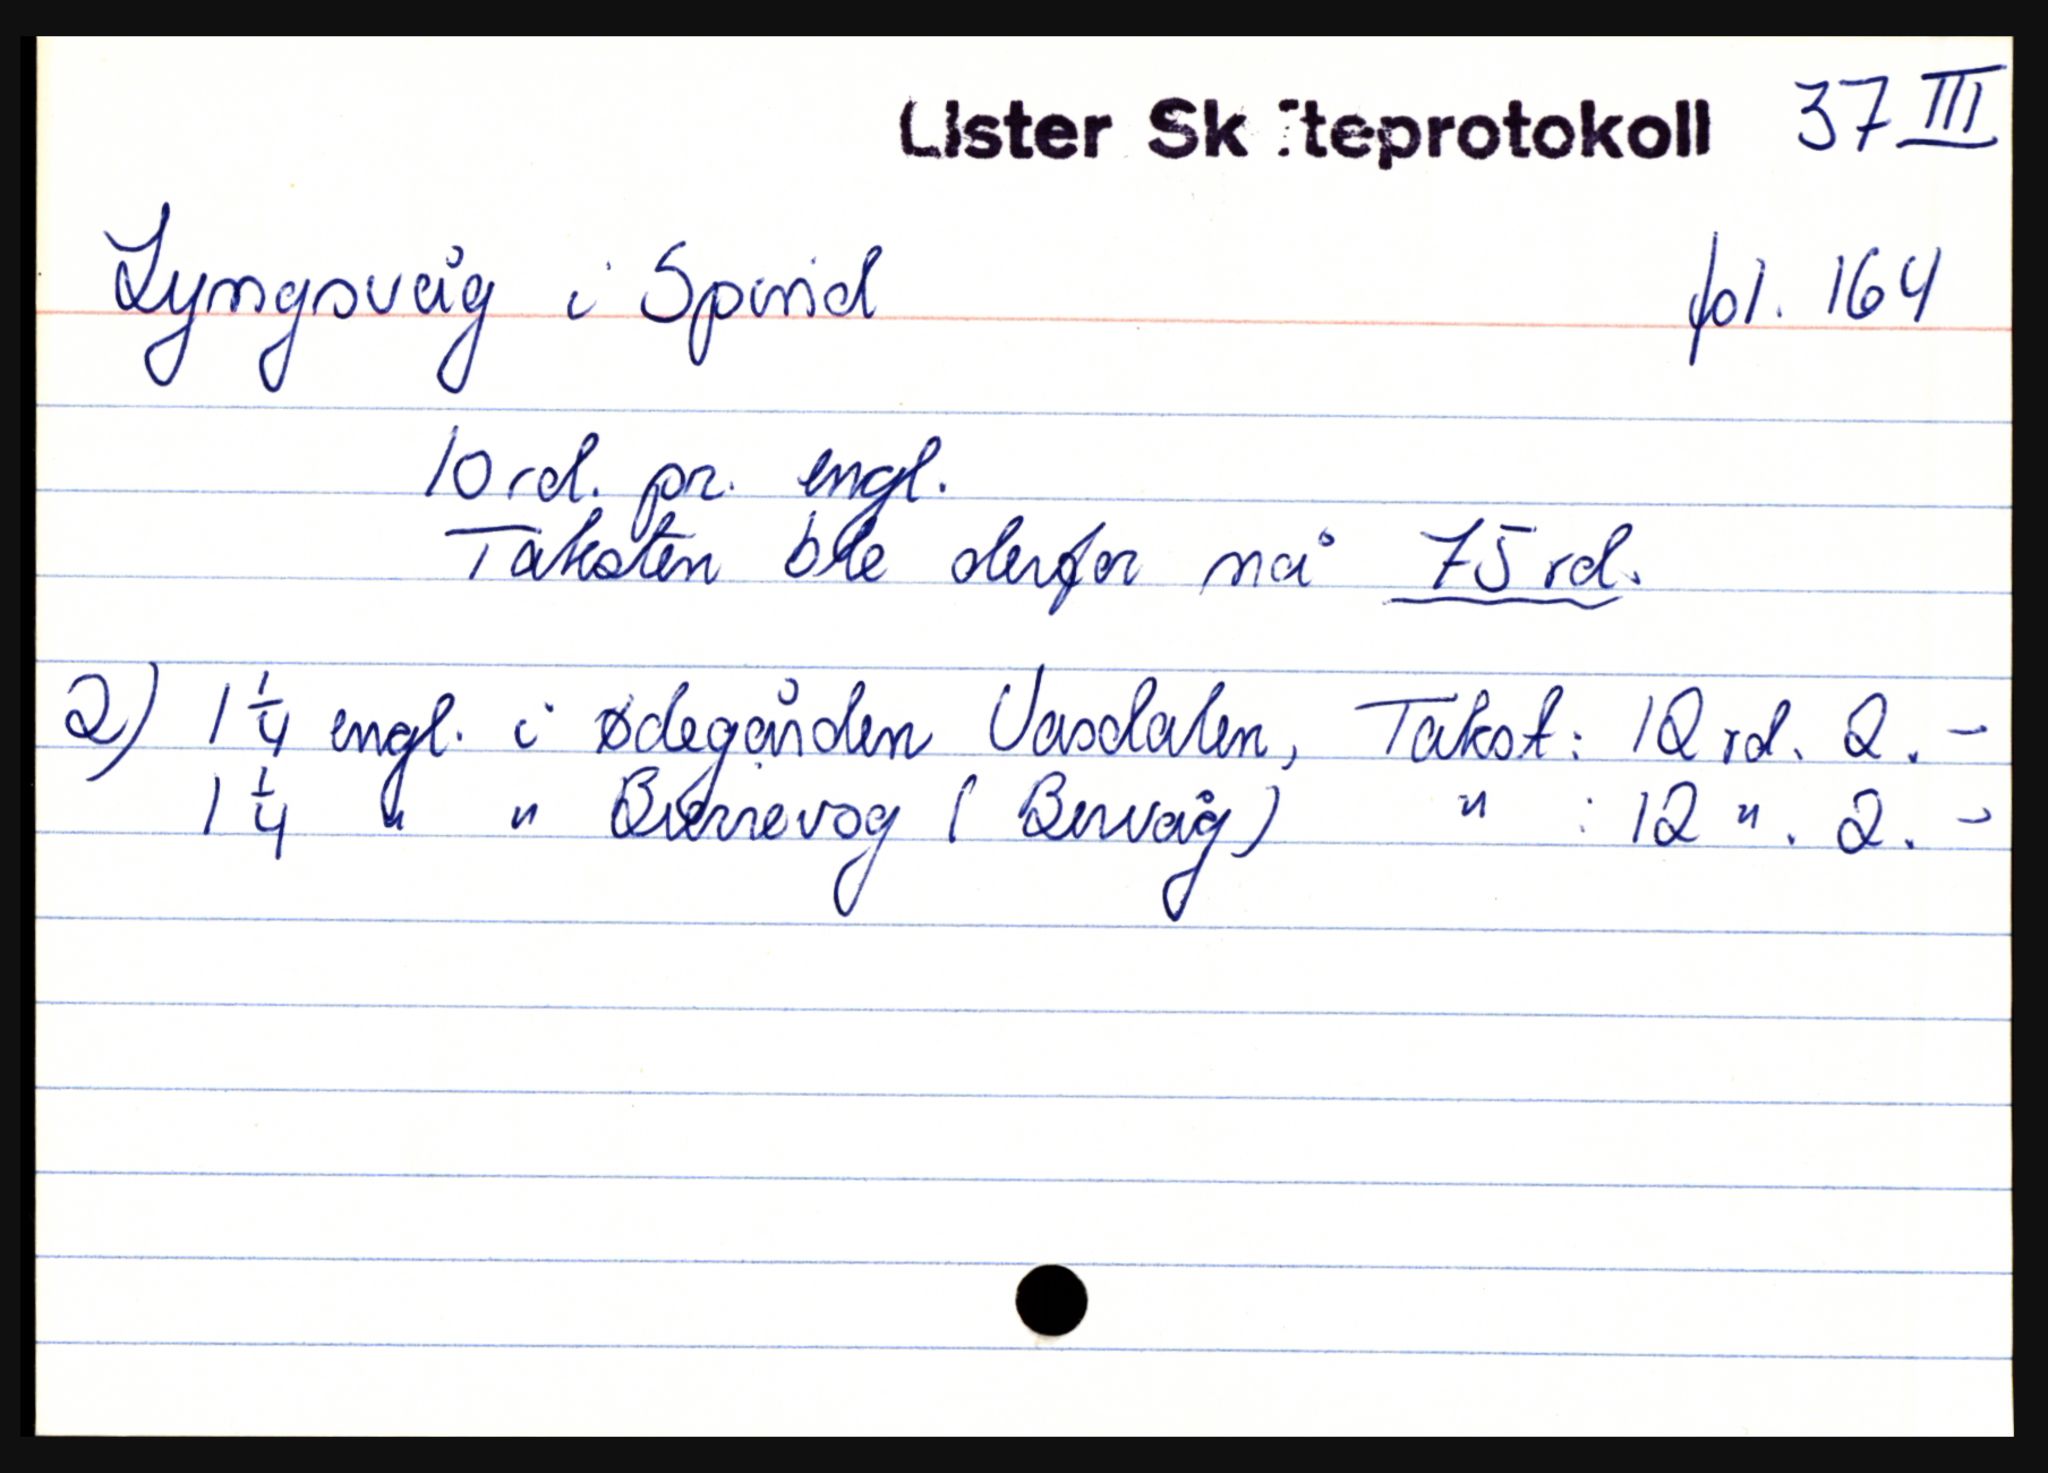 Lister Skifteprotokoll 37 III
Lyngsvåg i Spind fol. 164
10 rd. pr. engl.
Taksten ble derfor nå 75 rd.
2) 1 1/4 engl. i ødegården Vasdalen, Takst: 12 rd. 2. -
1 1/4 " " Bierrevog (Bervåg) " : 12 ". 2. -